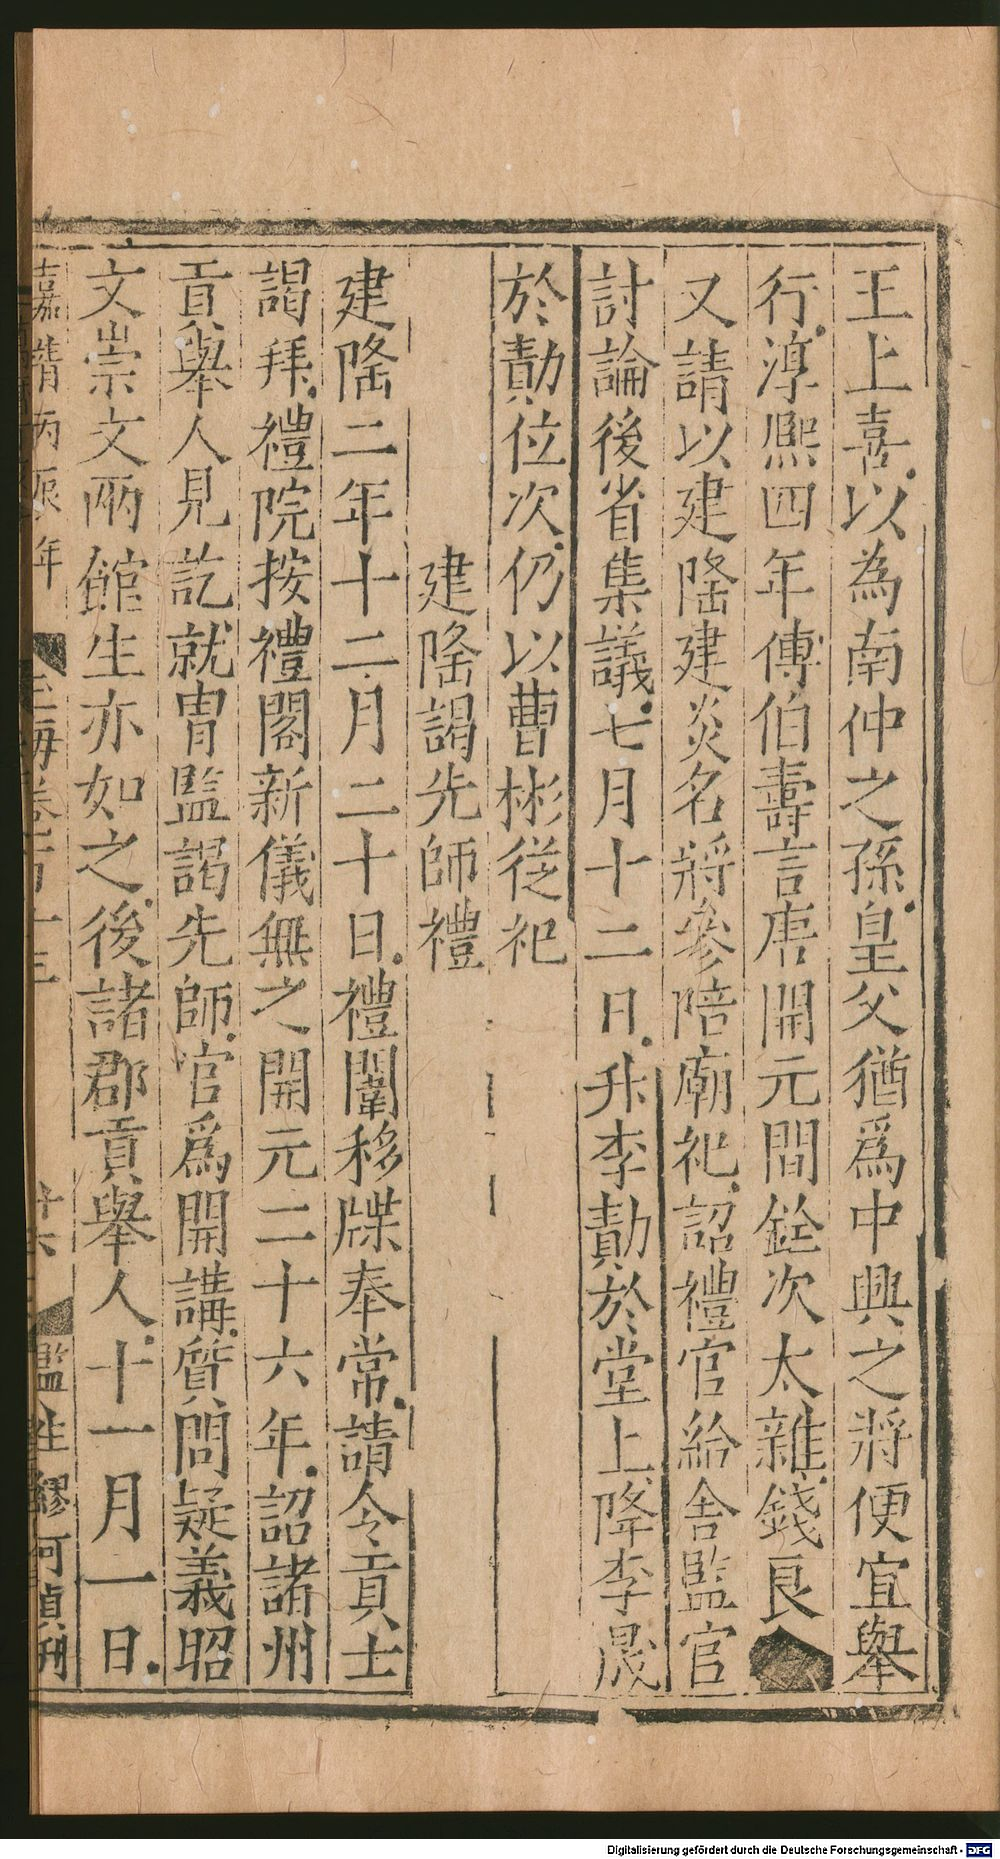 王上喜以為南仲之孫皇父猶爲中興之將便宜舉
行淳熈四年傅伯壽言唐開元間銓次太雜錢良
又請以建隆建炎名將參陪廟祀詔禮官給舍監官
討論後省集議七月十二日升李勣於堂上降李晟
於勣位次仍以曹彬從祀
建隆謁先師禮
建隆二年十二月二十日禮闈移牒奉常請令貢士
謁拜禮院按禮閣新儀無之開元二十六年詔諸州
貢舉人見訖就冑監謁先師官爲開講質問疑義昭
文崇文兩館生亦如之後諸郡貢舉人十一月一日
嘉靖丙辰年
玉海卷百十三
廿六
監生繆可貞刊
Digitalisierung gefördert durch die Deutsche Forschungsgemeinschaft - DFG